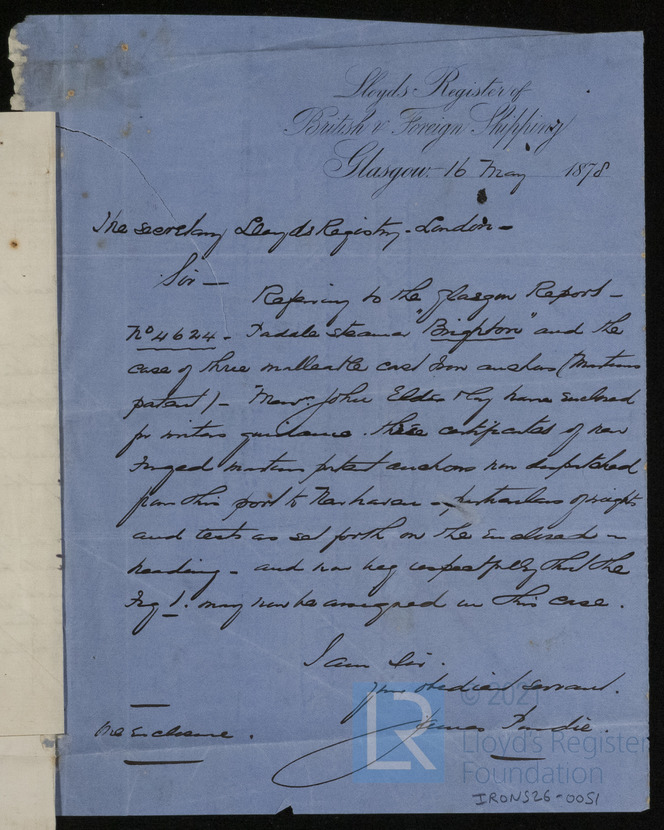 Lloyds Register of
British & Foreign Shipping
Glasgow 16 May 1878
The secretary Lloyds Registry - London -
Sir -
Referring to the Glasgow Report -
No 4624 - Paddle steamer "Brighton" and the
case of three malleable cast Iron anchors (Martins
patent) - Messrs John Elder & Co have enclosed
for writers guidance. these certificates of new
Forged martins patent anchors now despatched
from this port to Newhaven - particulars of weights
and tests as set forth on the Enclosed -
heading - and now beg respectfully that the
Fig 1. may now be assigned in this case.
I am Sir.
your obedient servant.
James Purdie.
One Enclosure.
© 2021
LR
Lloyd's Register
Foundation
IRONS26-0051